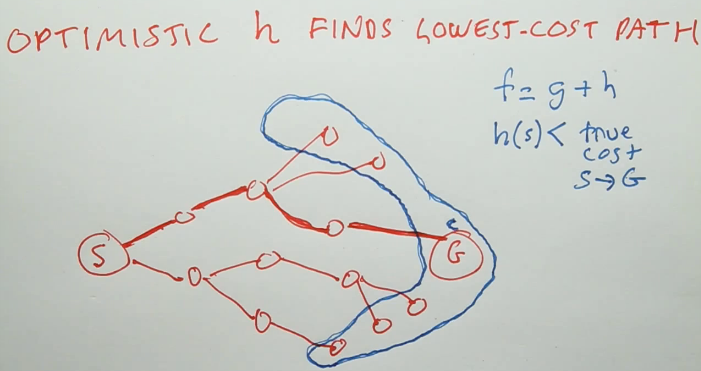 OPTIMISTIC h FINDS LOWEST-COST PATH
f = g + h
h(s) < true
cost
S → G
c
S
G